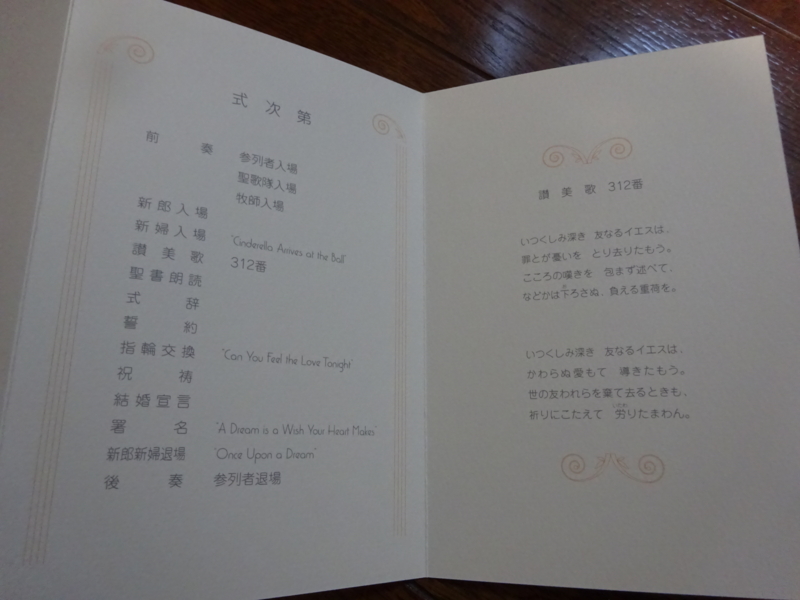 式次第
前奏 参列者入場
聖歌隊入場
牧師入場
新郎入場
新婦入場 "Cinderella Arrives at the Ball"
讃美歌 312番
聖書朗読
式辞
誓約
指輪交換 "Can You Feel the Love Tonight"
祝祷
結婚宣言
署名 "A Dream is a Wish You Heart Makes"
新郎新婦退場 "Once Upon a Dream"
後奏 参列者退場
讃美歌 312番
いつくしみ深き 友なるイエスは、
罪とが憂いを とり去りたもう。
こころの嘆きを 包まず述べて、
などかは下ろさぬ、負える重荷を。
いつくしみ深き 友なるイエスは、
かわらぬ愛もて 導きたもう。
世の友われらを棄て去るときも、
祈りにこたえて 労りたまわん。